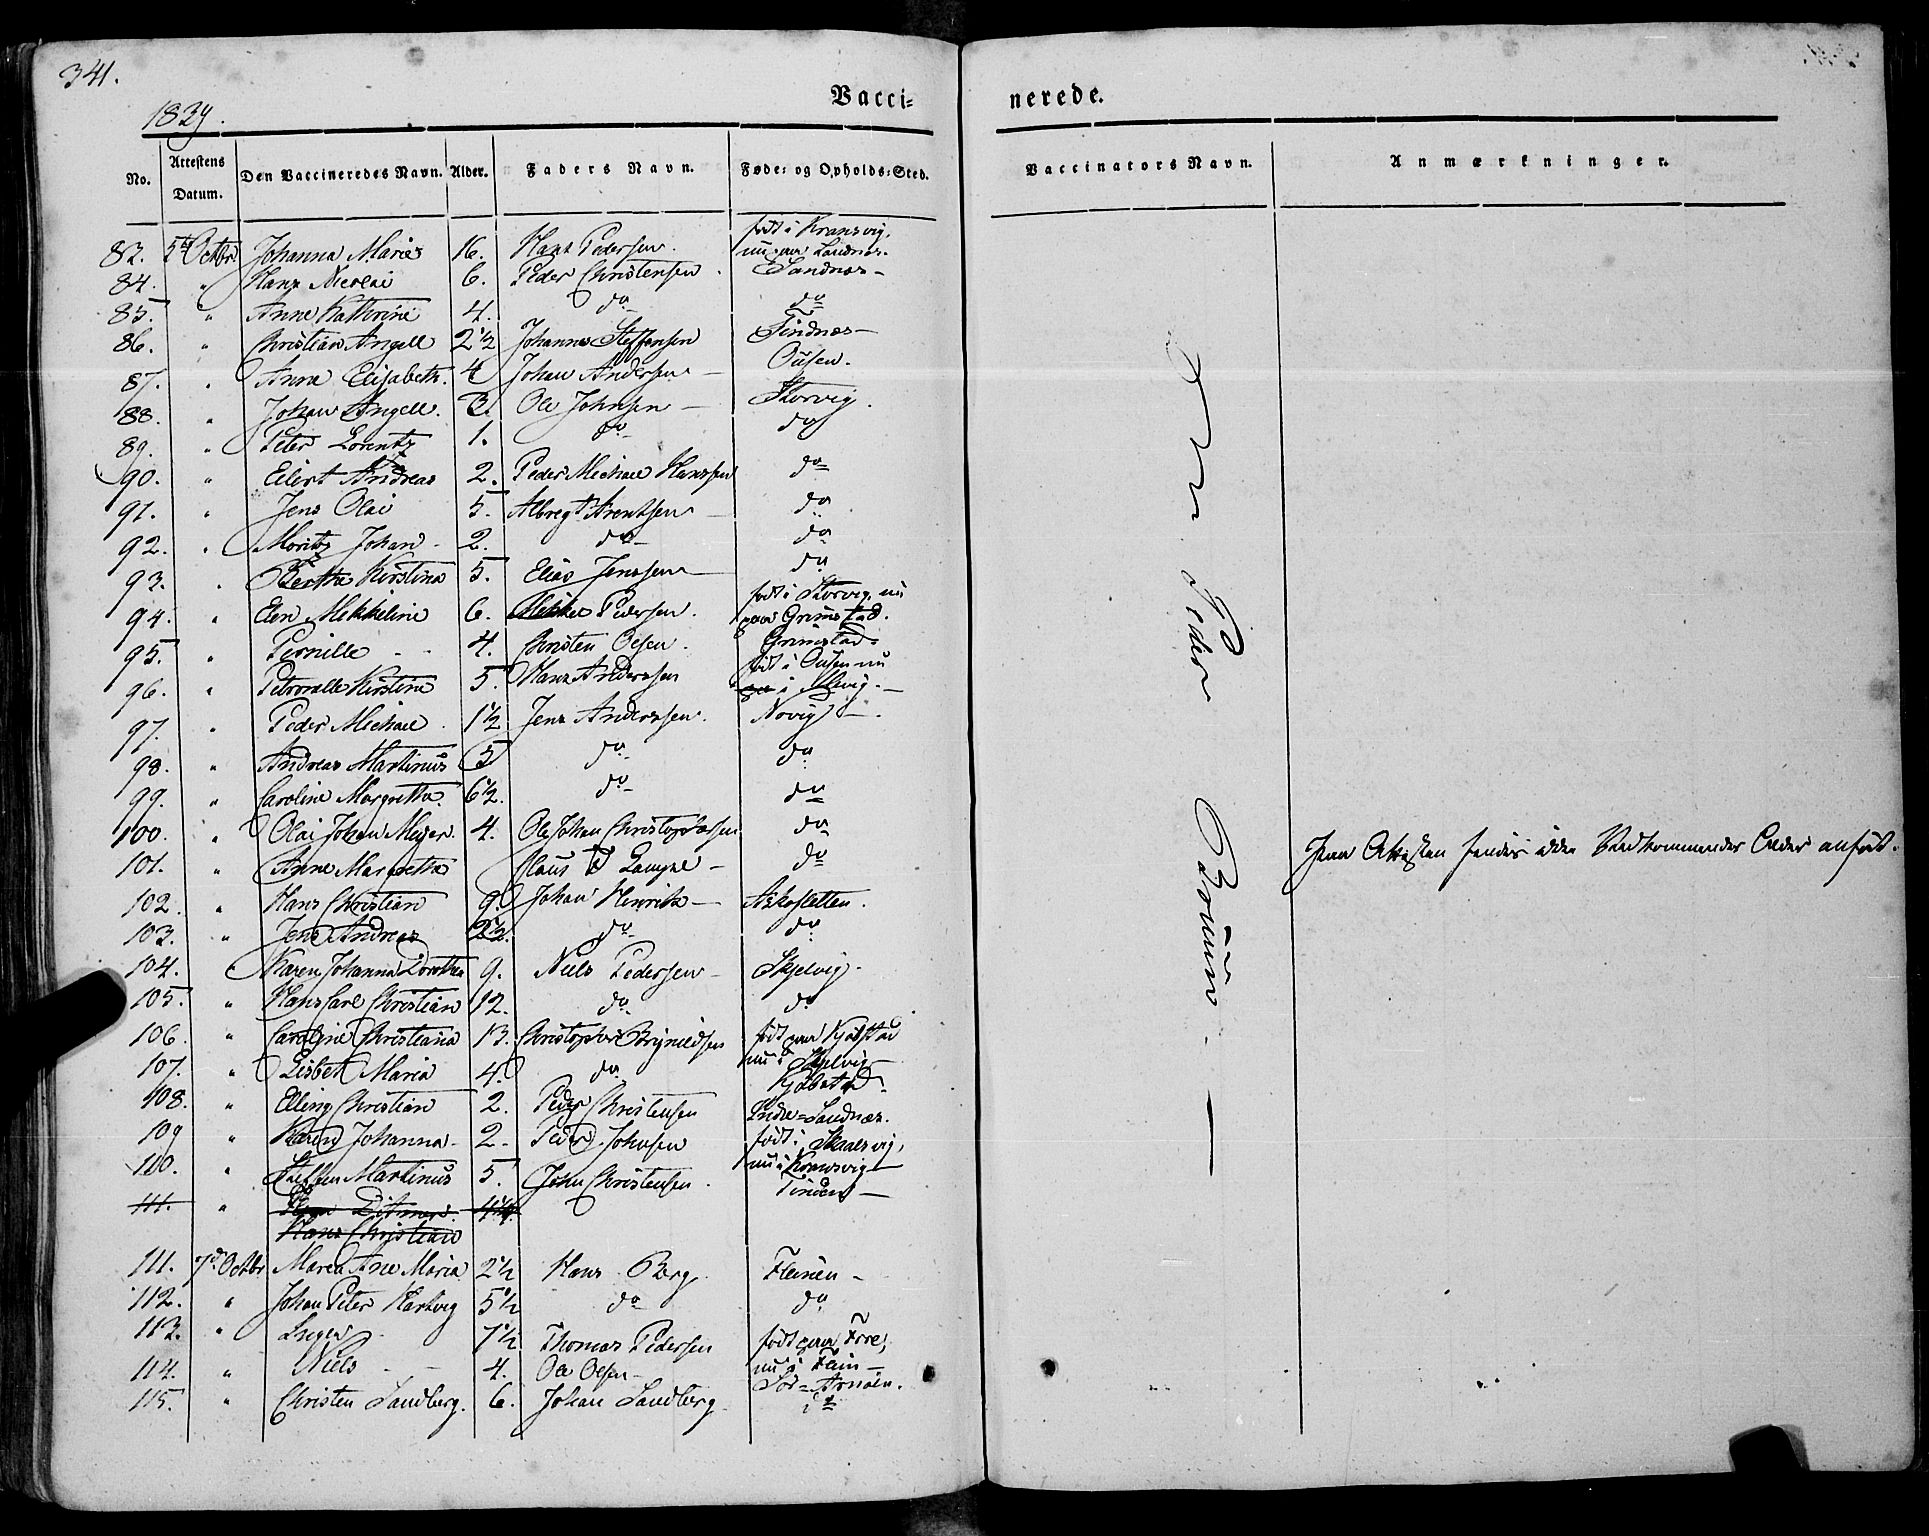 341.
1829.
Vacci-
nerede.
No. Attestens Datum. Den Vaccineredes Navn. Alder. Faders Navn. Føde- og Opholds-Sted.
Vaccinators Navn. Anmærkninger.
født i Kransvig,
83. 5te Octbr Johanna Marie 16. Hans Pedersen. nu paa Sandnæs.
84. " Hans Nicolai 6. Peder Christensen. Sandnæs -
85. " Anne Kathrine 4. do do
86. " Christian Angell 2 1/2 Johannes Steffensen Tindnæs -
87. " Anna Elisabeth. 4 Johan Andersen - Ousen.
88. " Johan Angell. 3. Ole Johnsen - Storvig.
89. " Peter Lorentz 1. do do
90. " Eilert Andreas 2. Peder Michael Hanssen do
91. " Jens Olai 5. Albregt Arentsen - do
92. " Moritz Johan - 2. do do
93. " Bertha Kirstina 5. Elias Jenssen - do
født i Storvig, nu
94. " Elen Mekkeline 6. Mekkel Pedersen. paa Grimstad.
95. " Pernille - - 4. Christen Olsen. Grimstad -
født i Ousen nu
96. " Petronelle Kirstine 5. Hans Anderssen i Alsvig. -
97. " Peder Michael. 1 1/2 Jens Anderssen. Novig -.
98. " Andreas Martinus 5 do do
99. " Caroline Margretha 6 1/2. do do
100. " Olai Johan Meyer. 4. Ole Johan Christophersen do
101. " Anne Margretha Claus Lampe - do Paa Attesten findes ikke Vedkommendes Alder anført.
102. " Hans Christian 9. Johan Henrik - Askosletten.
103. " Jens Andreas 2 1/2. do do
104. " Karen Johanna Dorothea 9. Niels Pedersen - Skjelvig.
105. " Hans Carl Christian 12. do do
106. " Caroline Christiana 13. Christopher Brynildsen født paa Kjølstad
nu i Skjelvig -
107. " Lisbet Maria 4. do Kjølstad.
108. " Elling Christian 2. Peder Christensen Indre-Sandnæs.
109 " Karen Johanna - 2. Peder Johnsen født i Skaalsvig,
nu i Kransvig -
110. " Steffen Martinus 5. John Christensen. Tinden -
111. " Ditmar. 4 1/4.
Hans Christian
111. 7de Octbr Maren Ane Maria 2 1/2 Hans Berg. Fleinen -
112. " Johan Peter Hartvig 5 1/2 do do
113. " Inger 7 1/2 Thomas Pedersen født paa Fore,
nu i Flein -
114. " Niels - - 4. Ole Olsen - Sør-Arnøen.
115. " Christen Sandberg. 6. Johan Sandberg do
Peder Bruun. -